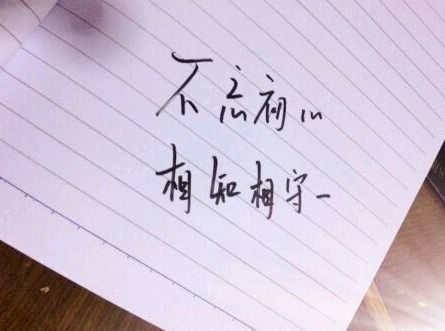 不忘初心
相知相守